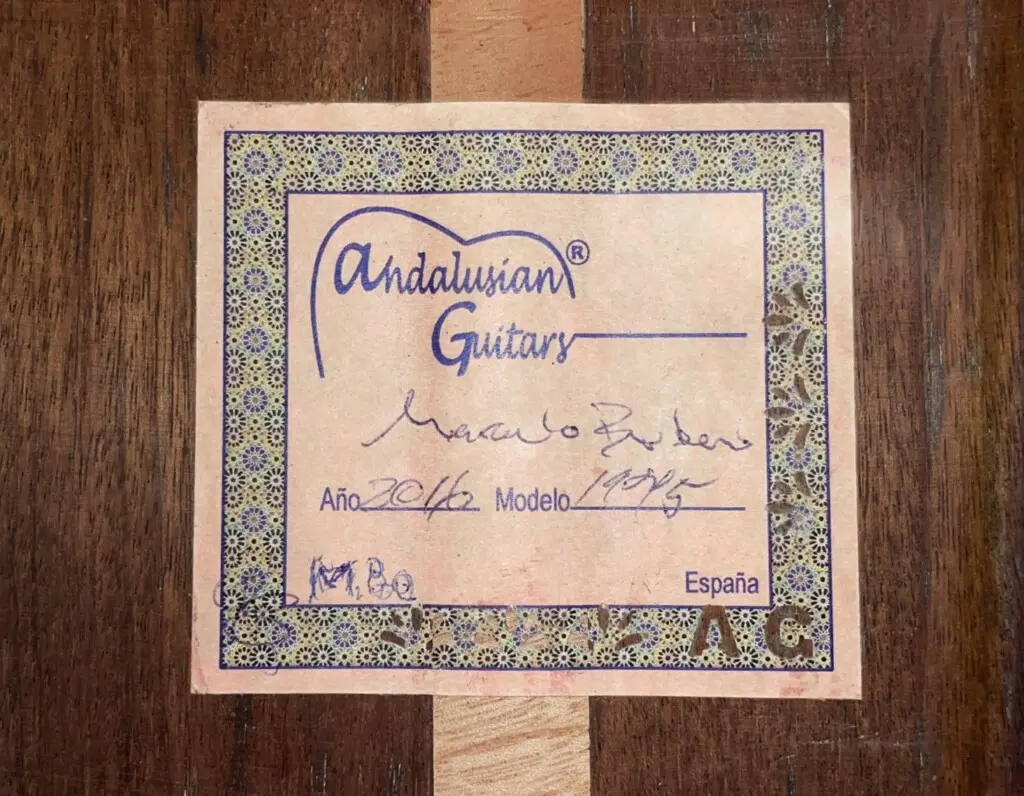 Andalusian ®
Guitars
Marcelo Barbero
Año 2016 Modelo 1945
España
M. Bo
A G